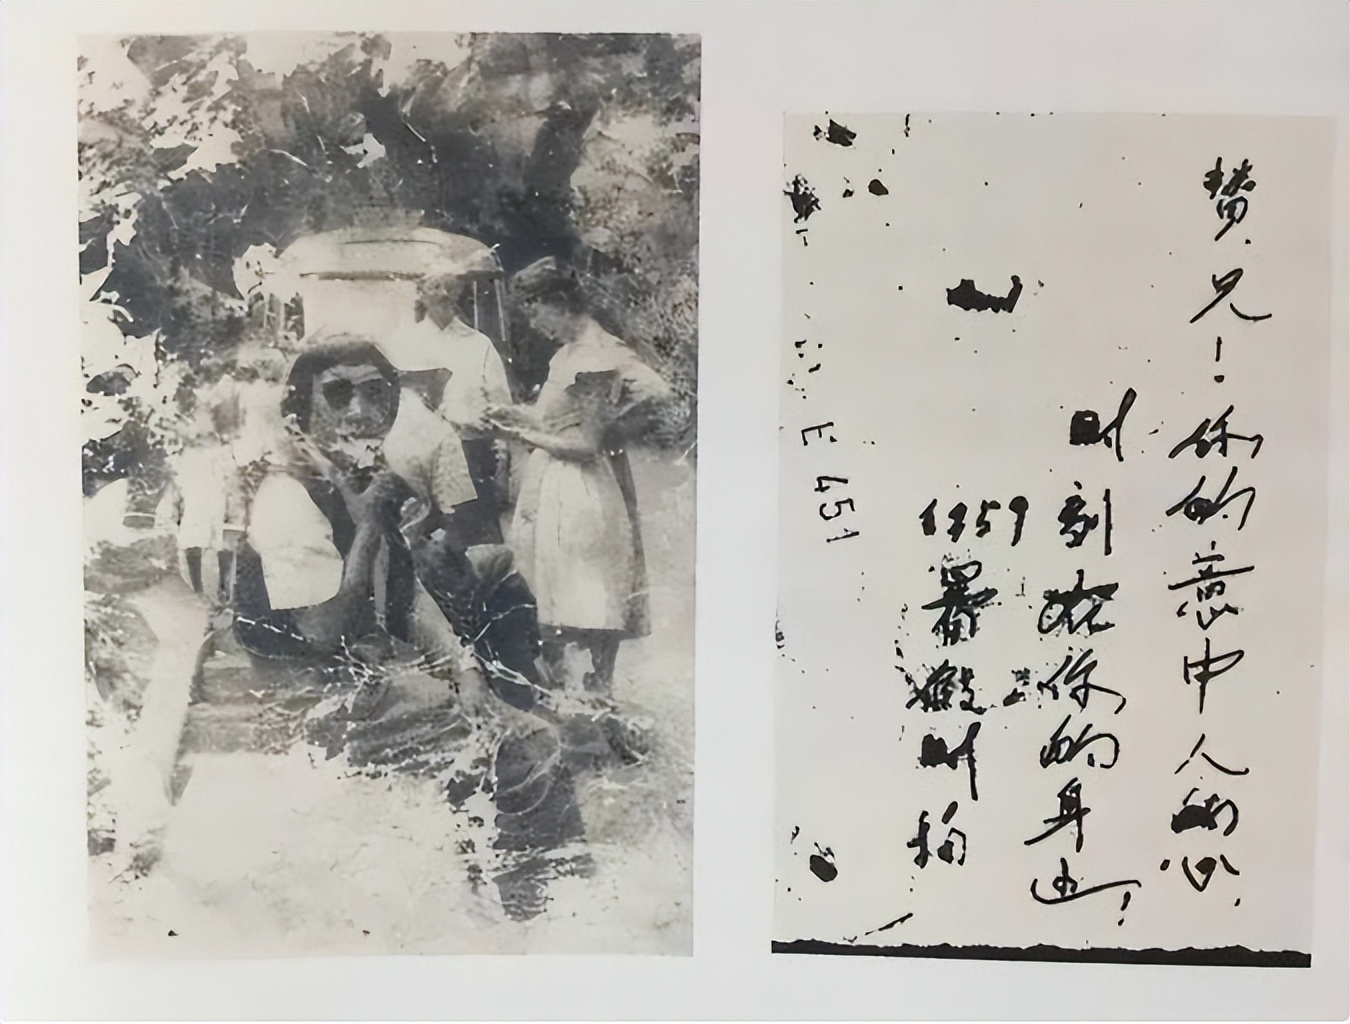 赞兄！你的意中人的心，
时刻在你的身边！
1959 暑假时拍
E 451